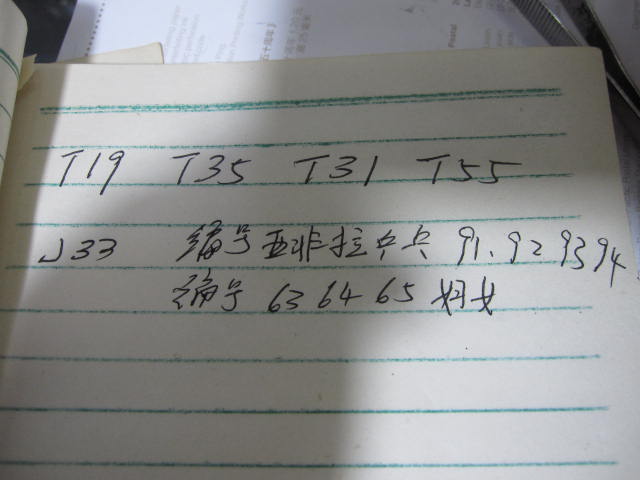 T19 T35 T31 T55
J33 编号亚非拉乒乓 91、92 93 94
编号 63 64 65 妇女